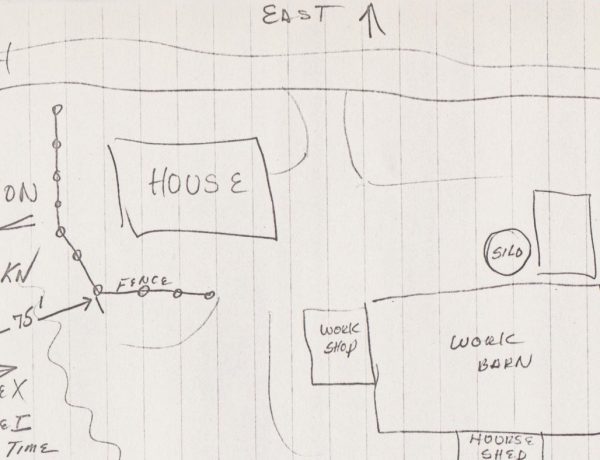 EAST
HOUSE
ON
KN
FENCE
75'
SILO
WORK
SHOP
WORK
BARN
EX
EI
TIME
HOURSE
SHED